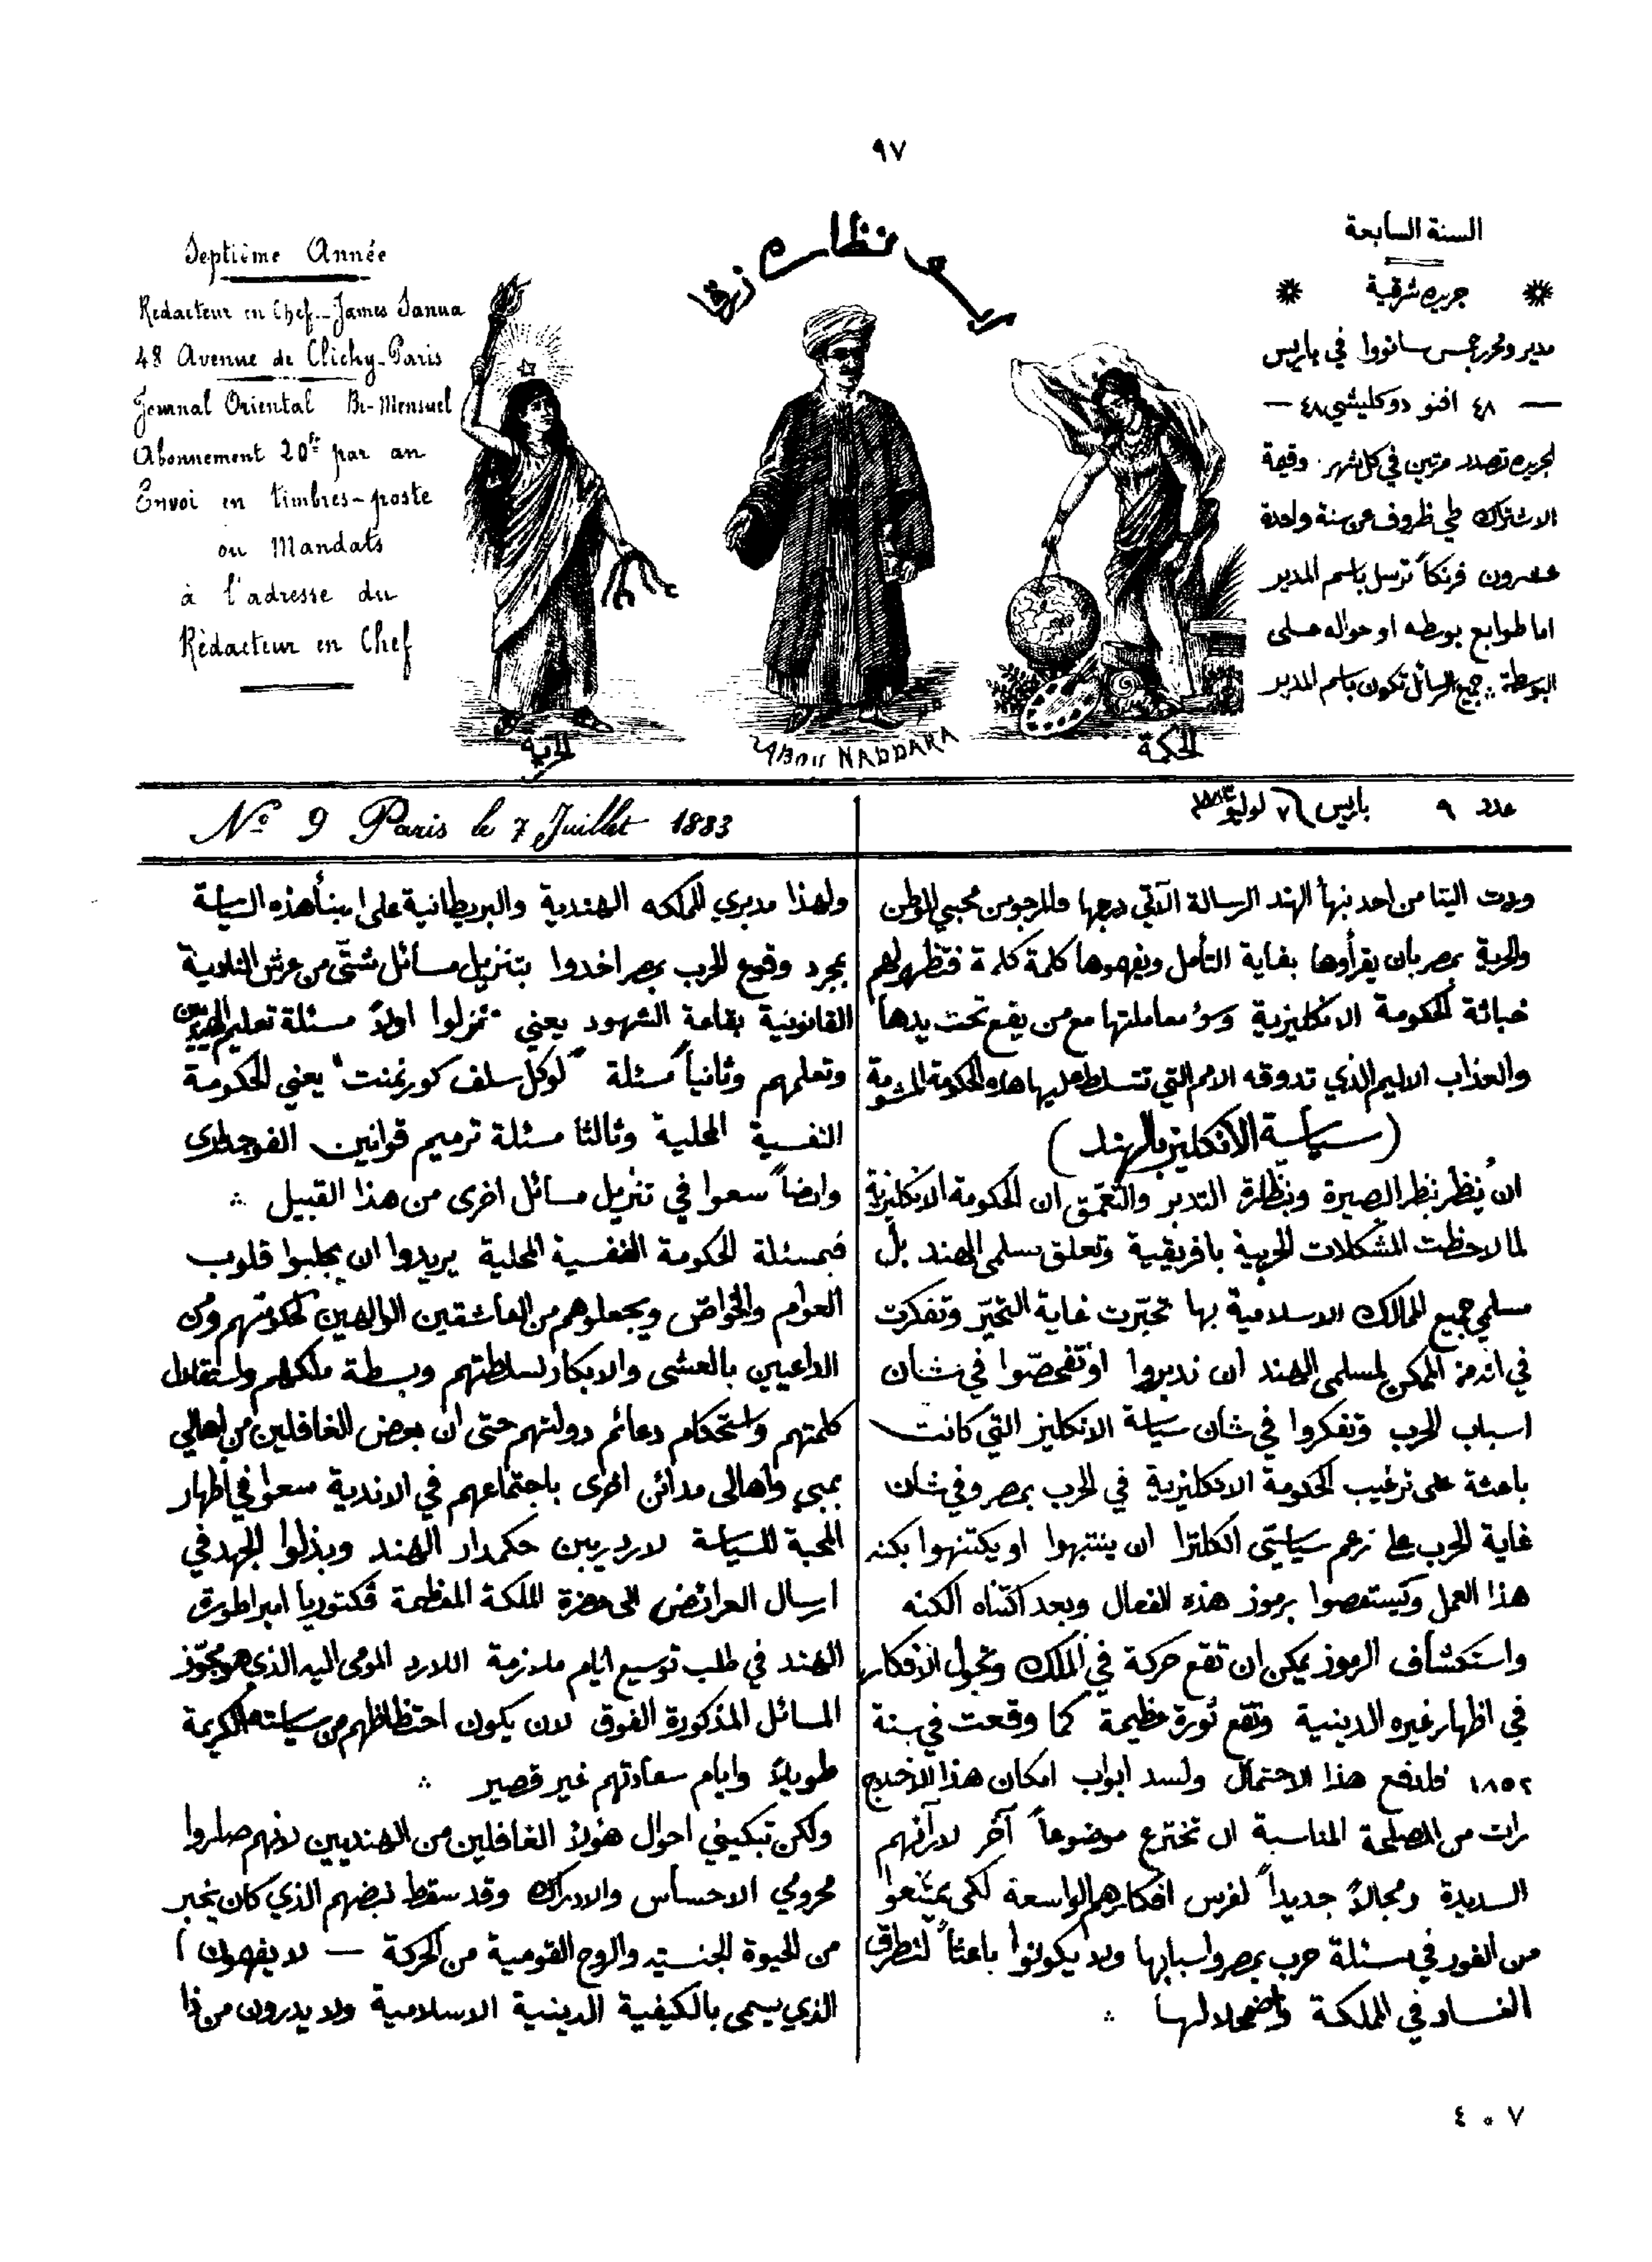 ٩٧
السنة السابعة
جريده شرقية
مدير ومحرر جمس سانووا في باريس
٤٨ افنو دو كليشي ٤٨
الجريده تصدر مرتين في كل شهر وقيمة
الاشتراك طي ظروف عن سنة واحدة
عشرون فرنكاً ترسل باسم المدير
اما طوابع بوسطه او حواله على
البوسطة ∴ جميع الرسائل تكون باسم المدير
نظاره زرقا
Septième Année
Rédacteur en Chef - James Sanua
48 Avenue de Clichy - Paris
Journal Oriental Bi-Mensuel
Abonnement 20fr par an
Envoi en timbres-poste
ou Mandats
à l'adresse du
Rédacteur en Chef
الحكمة
ABOU NADDARA
الحرية
عدد ٩ باريس ٧ لوليو ١٨٨٣
No 9 Paris le 7 Juillet 1883
وردت الينا من احد نبهأ الهند الرسالة الآتي درجها والمرجو من محبي الوطن
والحرية بمصر بان يقرأوها بغاية التأمل ويفهموها كلمة كلمة فتظهر لهم
خباثة الحكومة الانكليزية وسؤ معاملتها مع من يقع تحت يدها
والعذاب الاليم الذي تدوقه الامم التي تتسلط عليها هذه الحكومة المشومة
(سياسة الانكليز بالهند)
ان يُنظر بنظر البصيرة وبنظارة التدبر والتعمّق ان الحكومة الانكليزية
لما لاحظت المشكلات الحربية بافريقية وتعلق مسلمي الهند بل
مسلمي جميع الممالك الاسلامية بها تحيّرت غاية التحيّر وتفكرت
في انه من الممكن لمسلمي الهند ان تدبروا او تفحصّوا في شان
اسباب الحرب وتفكروا في شان سياسة الانكليز التي كانت
باعثة على ترغيب الحكومة الانكليزية في الحرب بمصر وفي شان
غاية الحرب على زعم سياسّي انكلترا ان ينتبهوا او يكتنهوا بكنه
هذا العمل ويستفصوا برموز هذه الفعال وبعد اكتناه الكنه
واستكشاف الرموز يمكن ان تقع حركة في الملك وتجول الافكار
في اظهار غيره الدينية وتقع ثورة عظيمة كما وقعت في سنة
١٨٥٢ فلدفع هذا الاحتمال ولسد ابواب امكان هذا
رات من المصلحة المناسبة ان تخترع موضوعاً آخر لارآئهم
السديدة ومجالاً جديداً لفرس افكارهم الواسعة لكي يمتنعوا
من الغور في مسئلة حرب بمصر واسبابها ولا يكونوا باعثاً لتطرق
الفساد في المملكة واضمحلالها ∴
ولهذا مديري المملكه الهندية والبريطانية على هذه السياسة
بمجرد وقوع الحرب بمصر اخدوا بتنزيل مسائل شتّى من عرش
القانونية بقاعة الشهود يعني نزلوا اولاً مسئلة تعليم الهنديين
وتعلمهم وثانياً مسئلة "لوكل سلف كورنمنت" يعني الحكومة
النفسية المحلية وثالثا مسئلة ترميم قوانين الفوجداري
وايضاً سعوا في تنزيل مسائل اخرى من هذا القبيل ∴
فبمسئلة الحكومة النفسية المحلية يريدوا ان يجلبوا قلوب
العوام والخواص ويجعلوهم من العاشقين الوالهين لحكومتهم ومن
الداعيين بالعشى والابكار لسلطتهم وبسطة ملكهم واستقلال
كلمتهم واستحكام دعائم دولتهم حتى ان بعض الغافلين من اهالي
بمبي واهالى مدائن اخرى باجتماعهم في الاندية سعوا في اظهار
المحبة للسياسة لارد ريبن حكمدار الهند وبذلوا الجهد في
ارسال العرائض الى حضرة الملكة المعظمة ڤكتوريا امبراطورة
الهند في طلب توسيع ايام ملازمة اللارد المومى اليه الذي هو مجوّز
المسائل المذكورة الفوق لان يكون احتظاظهم من سياسته الكريمة
طويلاً وايام سعادتهم غير قصير ∴
ولكن تبكيني احوال هؤلاء الغافلين من الهنديين لانهم صاروا
محرومي الاحساس والادراك وقد سقط نبضهم الذي كان يخبر
من الحيوة الجنسيه والروح القومية من الحركة — لا يفهمون
الذي يسمى بالكيفية الدينية الاسلامية ولا يدرون من ذا
٤٠٧